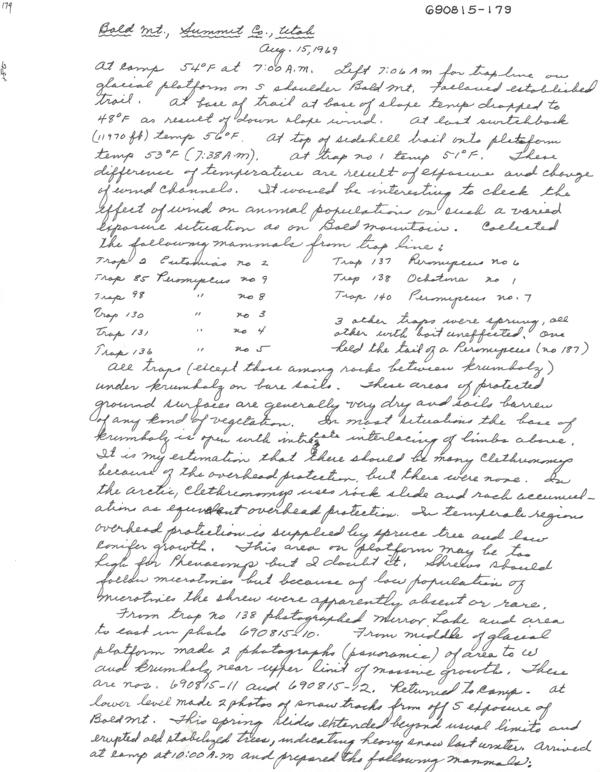 179
690815-179
Bald Mt., Summit Co., Utah
Aug. 15, 1969
At camp 54°F at 7:00 A.M. Left 7:06 AM for trap line on
glacial platform on S shoulder Bald Mt. Followed established
trail. At base of trail at base of slope temp dropped to
48°F as result of down slope wind. At last switchback
(11970 ft) temp 56°F. At top of sidehill trail onto platform
temp 53°F (7:38 A.M). At trap no 1 temp 51°F. These
difference of temperature are result of exposure and change
of wind channels. It would be interesting to check the
effect of wind on animal population on such a varied
exposure situation as on Bald Mountain. Collected
the following mammals from trap line:
Trap 2 Eutamias no 2 Trap 137 Peromyscus no 6
Trap 85 Peromyscus no 9 Trap 138 Ochotona no 1
Trap 98 " no 8 Trap 140 Peromyscus no. 7
Trap 130 " no 3
3 other traps were sprung, all
Trap 131 " no 4 other with bait uneffected. One
Trap 136 " no 5 held the tail of a Peromyscus (no 187)
All traps (except those among rocks between krumholz)
under krumholz on bare soils. These areas of protected
ground surfaces are generally very dry and soils barren
of any kind of vegetation. In most situations the base of
krumholz is open with intricate interlacing of limbs above.
It is my estimation that there should be many Clethrionomys
because of the overhead protection, but there were none. In
the arctic, Clethrionomys uses rock slide and rock accumul-
ations as equivalent overhead protection. In temperate regions
overhead protection is supplied by spruce tree and low
conifer growth. This area on platform may be too
high for Phenacomys but I doubt it. Shrews should
follow microtines but because of low population of
microtines the shrew were apparently absent or rare.
From trap no 138 photographed Mirror Lake and area
to east in photo 690815-10. From middle of glacial
platform made 2 photographs (panoramic) of area to W
and krumholz near upper limit of massive growth. These
are nos. 690815-11 and 690815-12. Returned to camp. At
lower level made 2 photos of snow tracks from off S exposure of
Bald Mt. This spring slides extended beyond usual limits and
erupted old stabilized trees, indicating heavy snow last winter. Arrived
at camp at 10:00 A.M and prepared the following mammals: